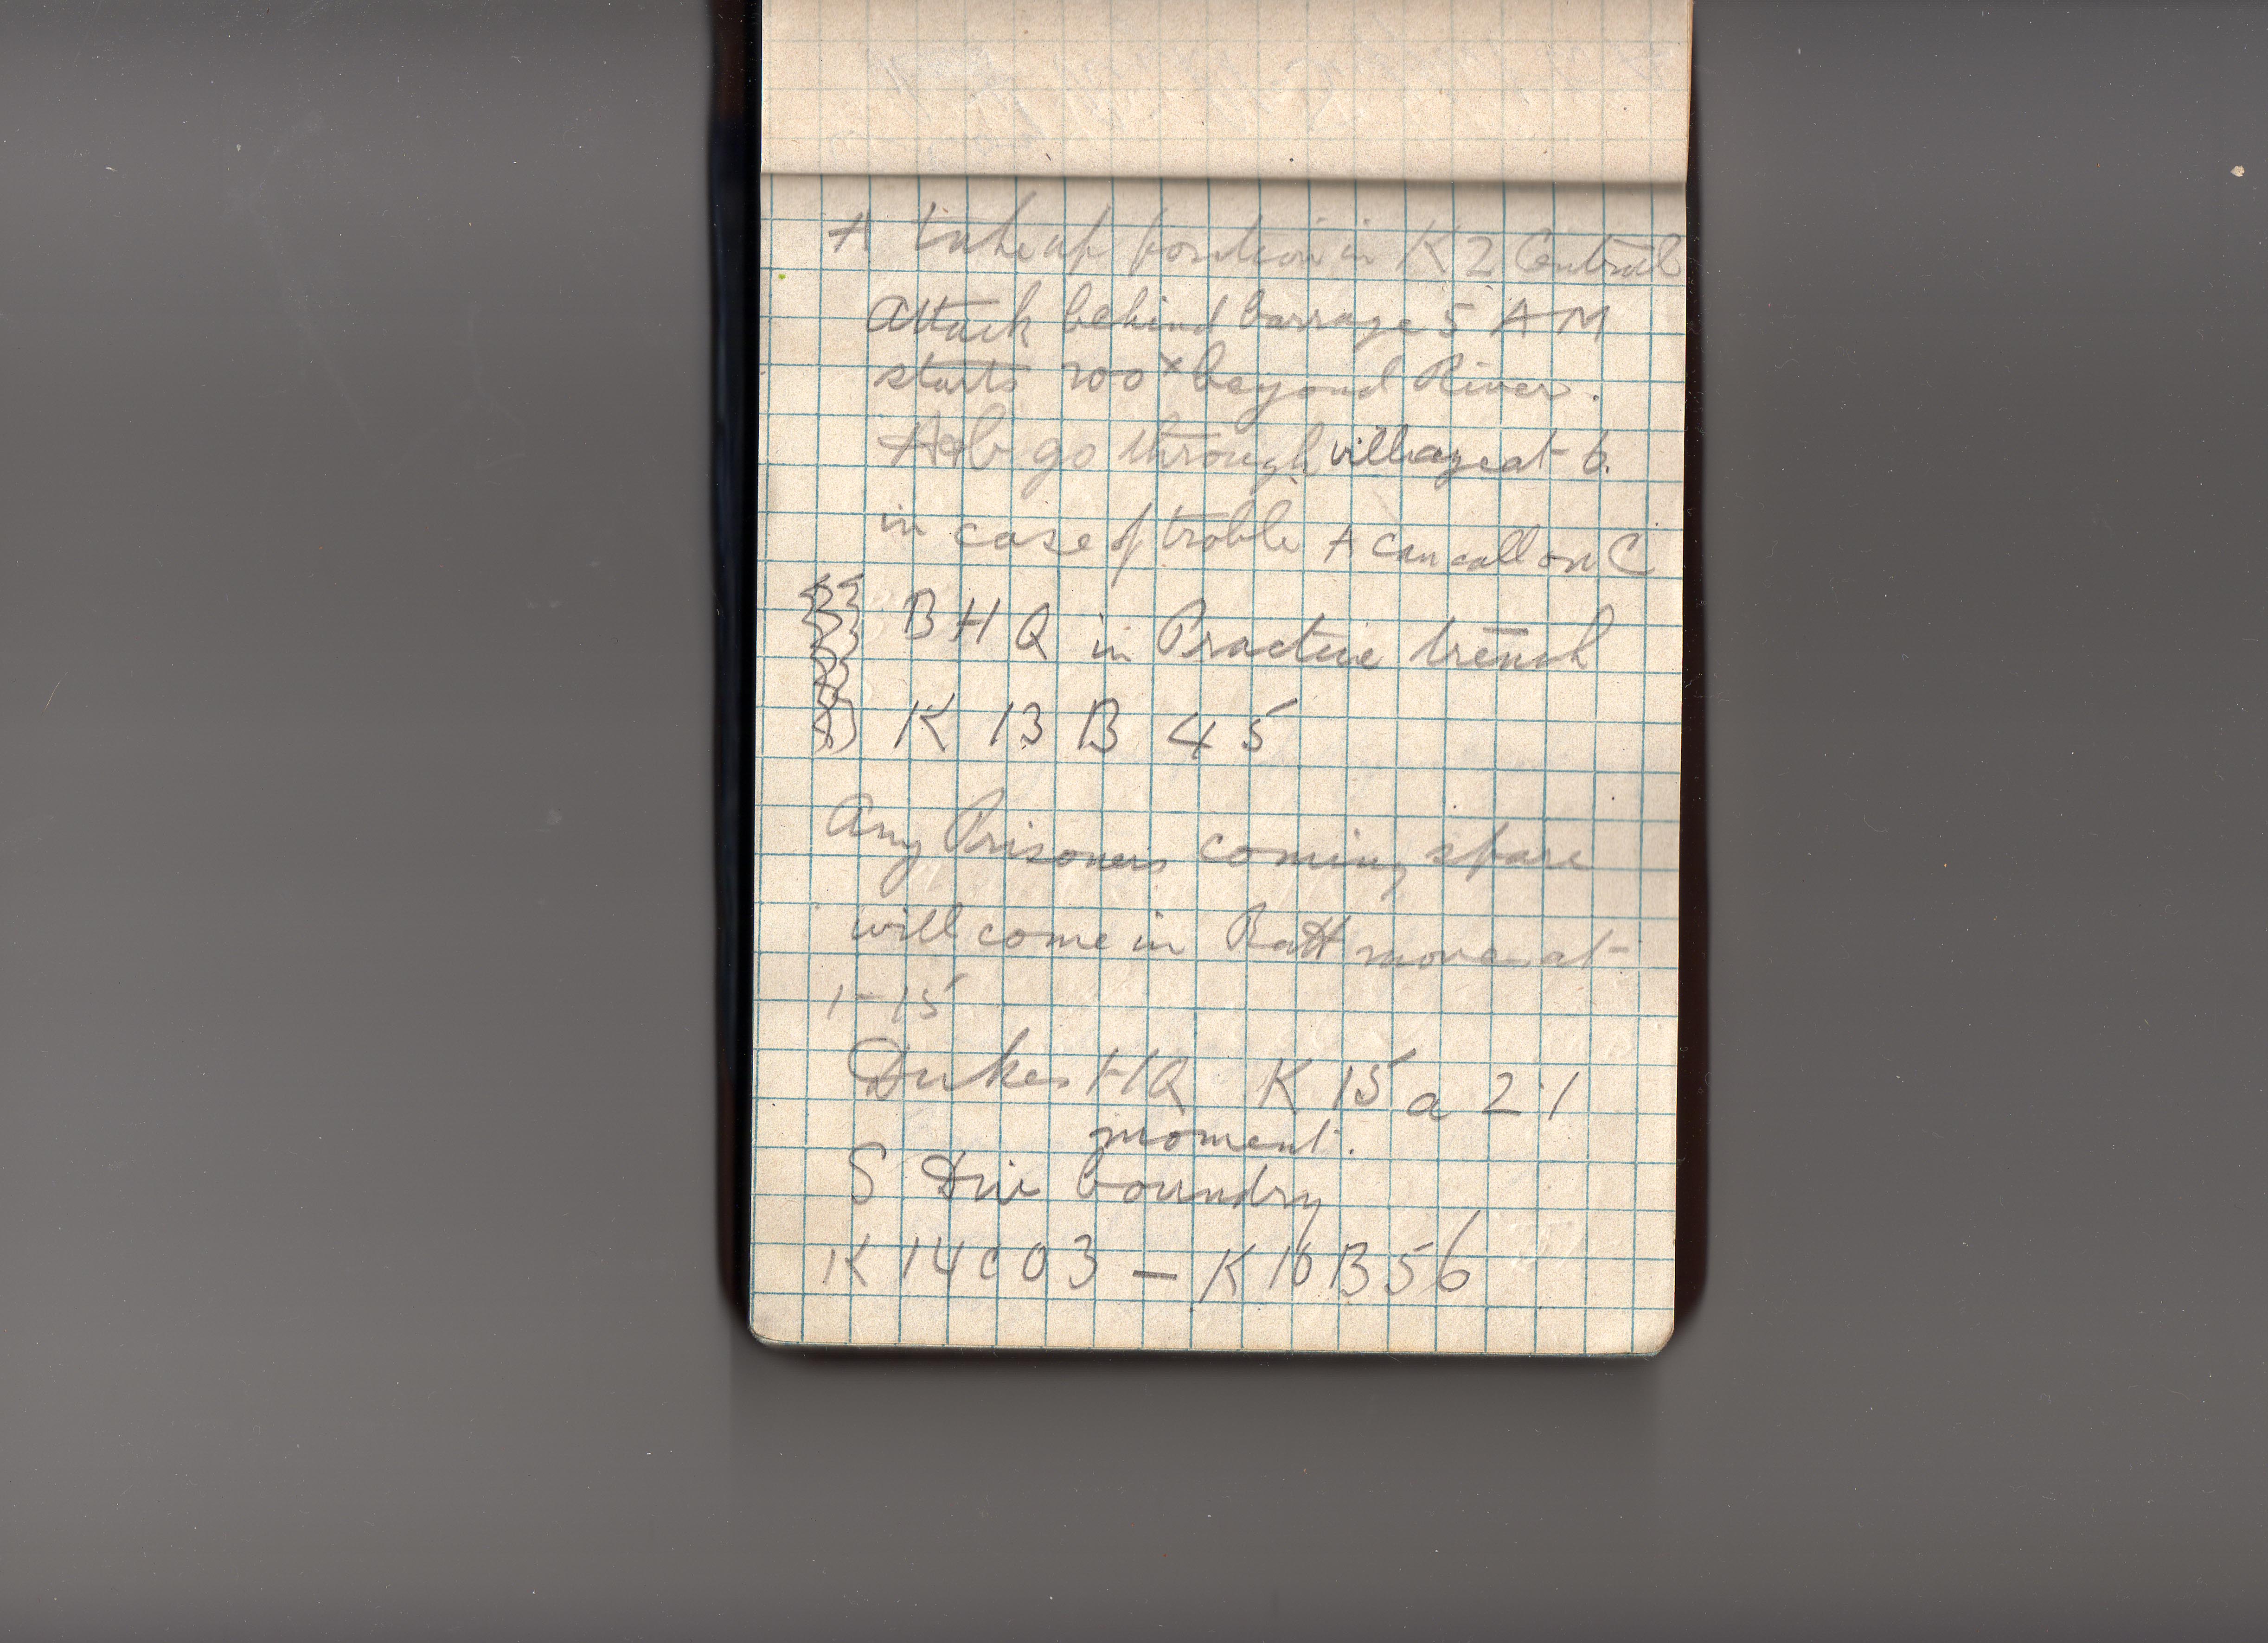 A take up position in K 2 Central
Attack behind barrage 5 A M
starts 200x beyond River.
A & b go through village at 6.
in case of troble A can call on C
B H Q in Practice trench
K 13 B 4 5
Any Prisoners coming spare
will come in Batt moves at
1-15
Dukes HQ K 15 a 2.1
moment.
S Div boundry
K 14 c 0 3 — K 16 B 5 6